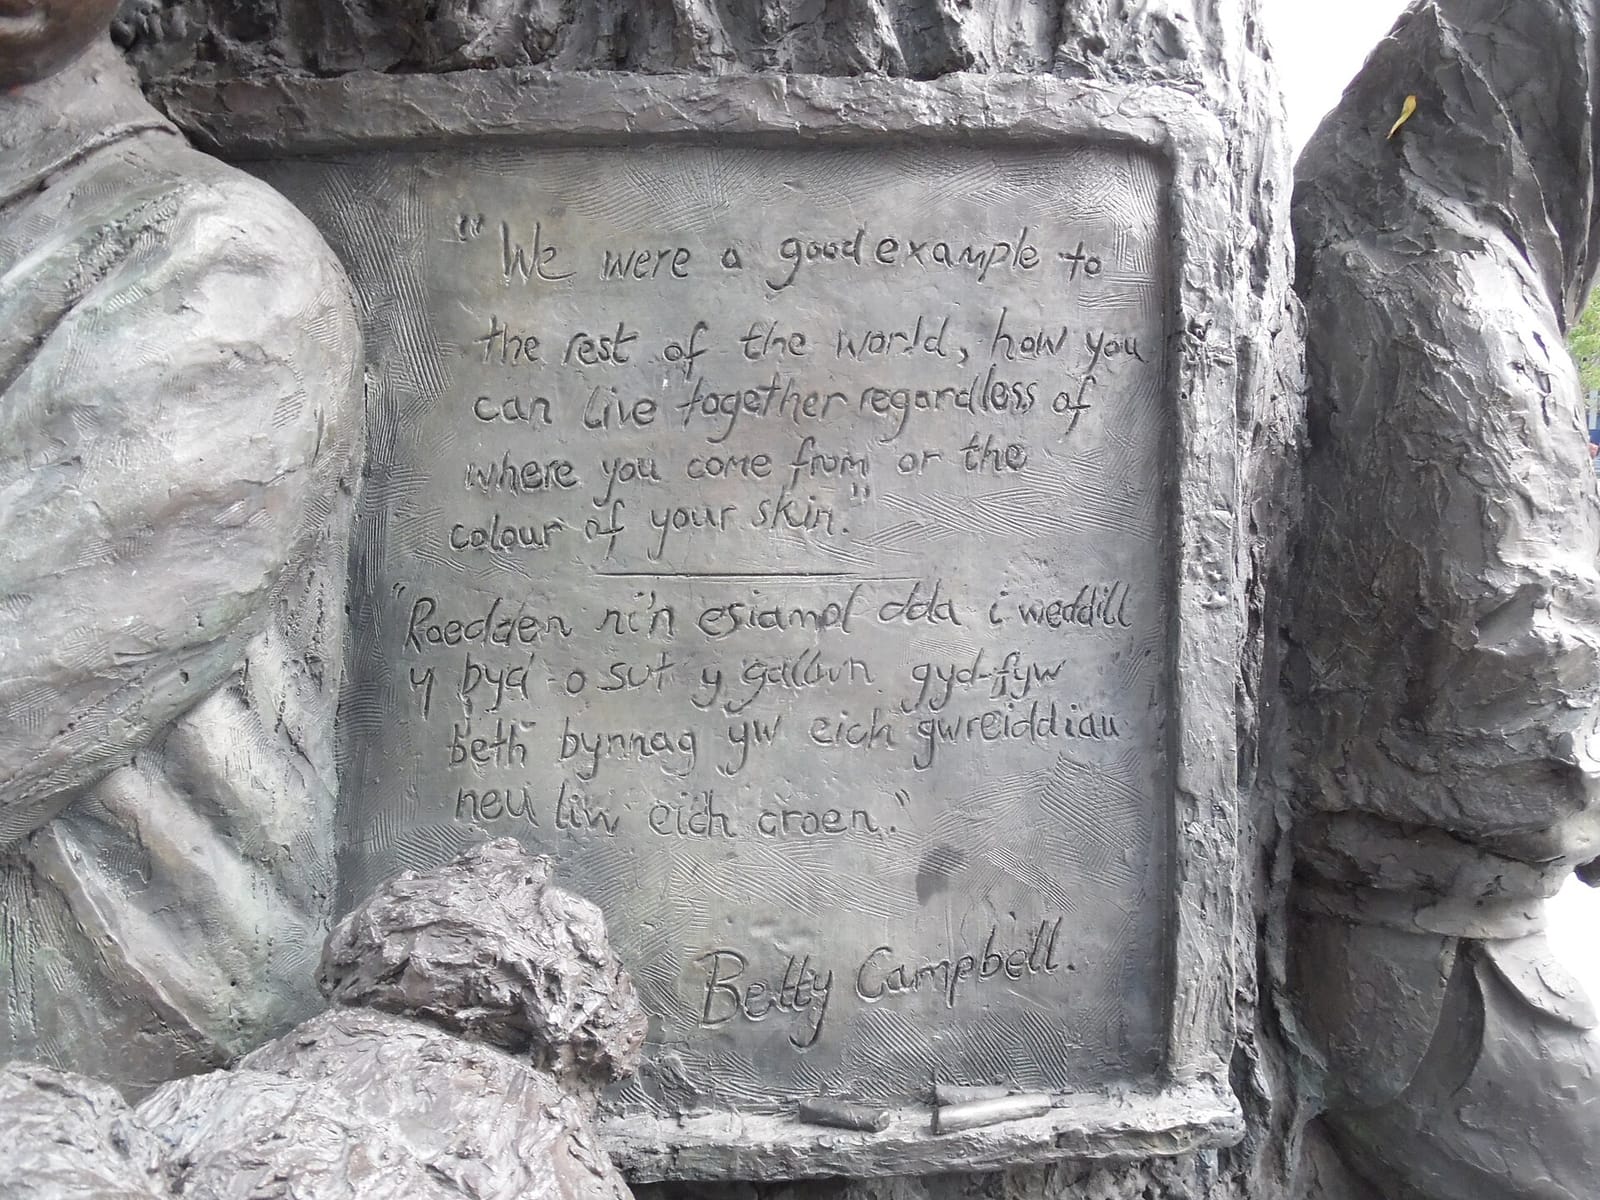 "We were a good example to
the rest of the world, how you
can live together regardless of
where you come from or the
colour of your skin."
"Roedden ni'n esiampl dda i weddill
y byd - o sut y gallwn gyd-fyw
beth bynnag yw eich gwreiddiau
neu liw eich croen."
Betty Campbell.